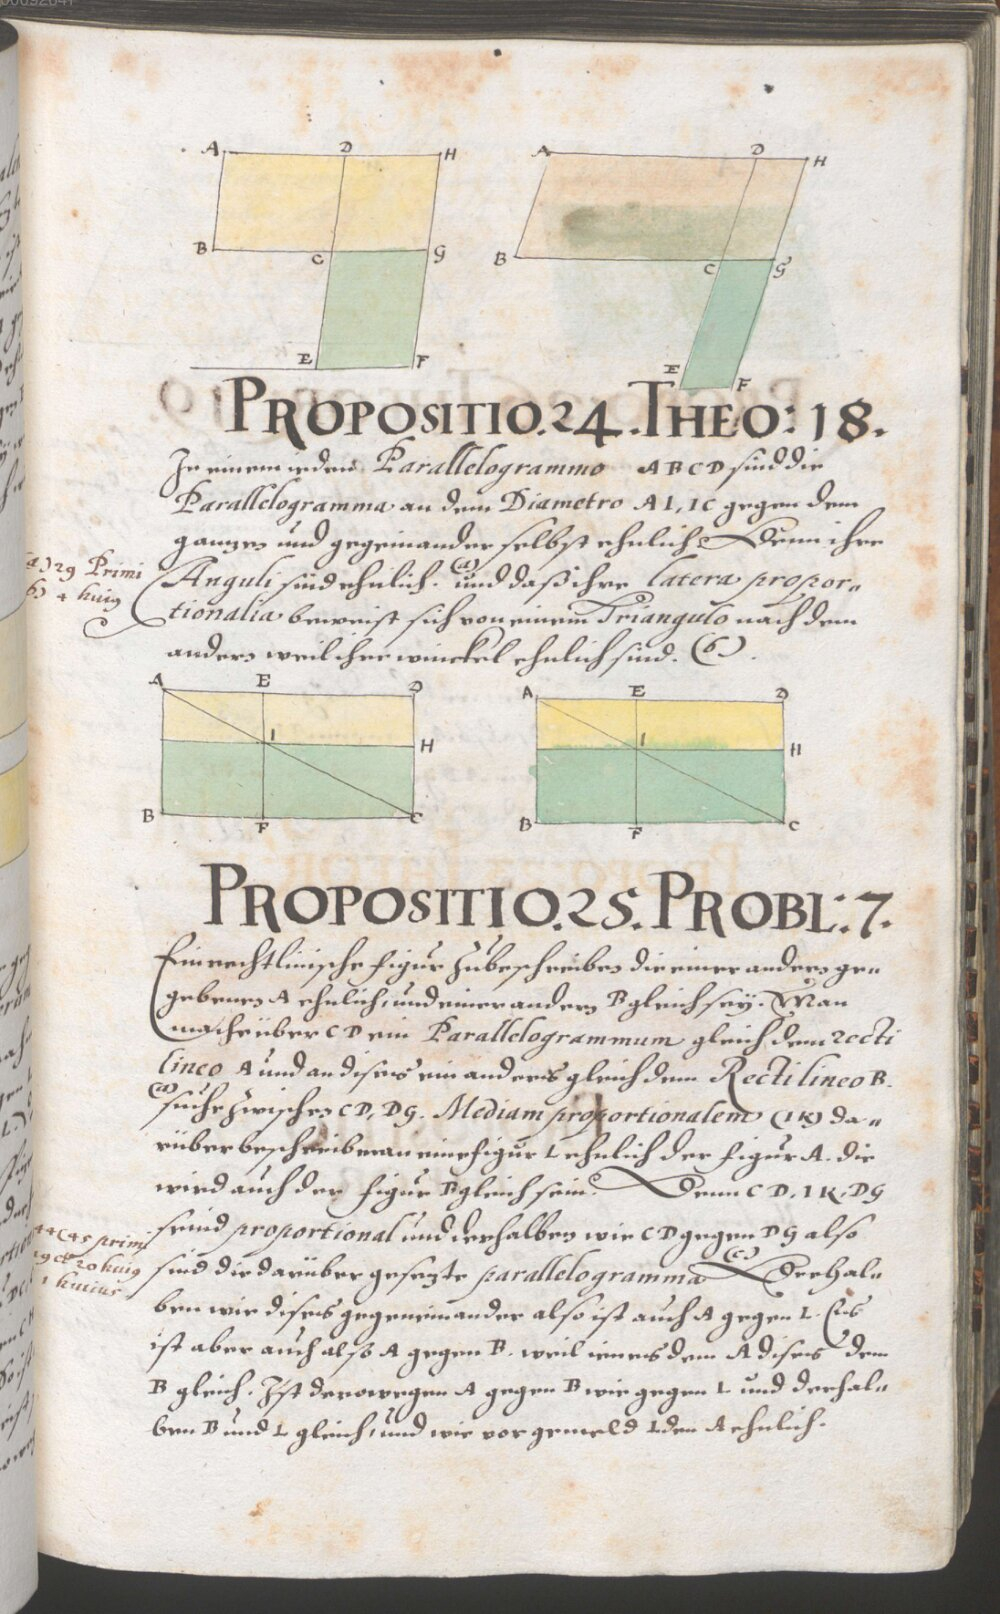 A D H
B C G
E F
A D H
B C G
E F
PROPOSITIO. 24. THEO: 18.
In einem ieden Parallelogrammo ABCD sind die
Parallelogramma an dem Diametro AI, IC gegen dem
ganzen und gegeinander selbst ehnlich. Denn ihre
Anguli sind ehnlich. (a) und daß ihre latera propor-
tionalia beweist sich von einem Triangulo nach dem
andern weil ihre winckel ehnlich sind. (b)
(a) 29 Primi
b) 4 huig
A E D
I H
B F C
A E D
I H
B F C
PROPOSITIO. 25. PROBL: 7.
Ein rechtlinische figur zu beschreiben die einer andern ge-
gebenen A ehnlich, und einer andern B gleich sey. Man
mache über CD ein Parallelogrammum gleich dem recti
lineo A und an dises ein anders gleich dem Rectilineo B.
(a) suche zwischen CD, DG. Mediam proportionalem (IK) da-
rüber beschreibe man eine figur L ehnlich der figur A. die
wird auch der figur B gleich sein. Denn CD, IK, DG
seind proportional und derhalben wie CD gegen DG also
sind die darüber gesezte parallelogramma (c) Derhal-
ben wie dises gegeneinander also ist auch A gegen L. Es
ist aber auch also A gegen B. weil ienes dem A dises dem
B gleich. Ist derowegen A gegen B wie gegen L und derhal-
ben B und L gleich, und wie vor gemeld L den A ehnlich.
44 (45 primi
19 et 20 huig
1 huius